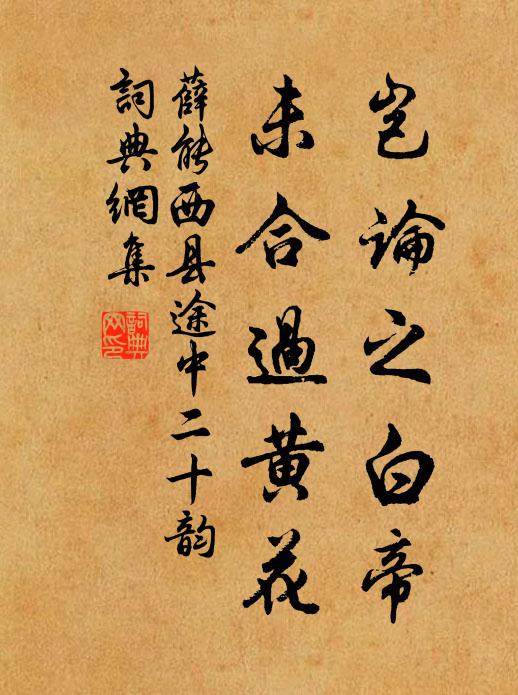 岂論之白帝
未合過黄花
薛能西县途中二十韵
詞典網集
詞典網印